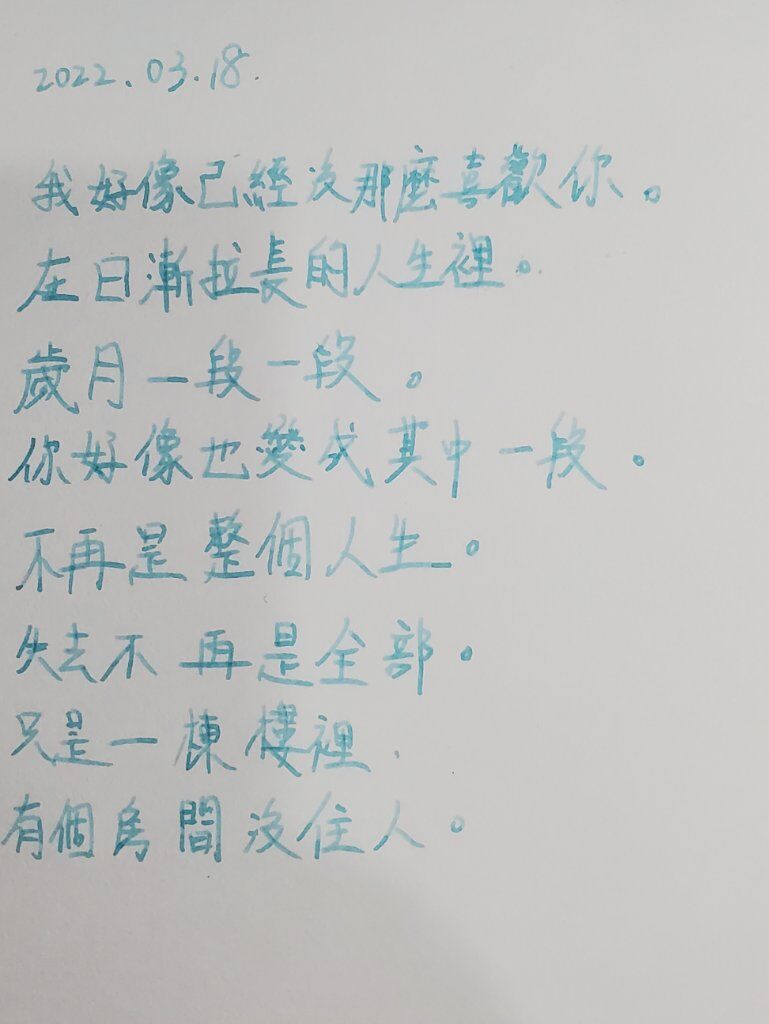 2022.03.18.
我好像已經沒那麼喜歡你。
在日漸拉長的人生裡。
歲月一段一段。
你好像也變成其中一段。
不再是整個人生。
失去不再是全部。
只是一棟樓裡.
有個房間沒住人。